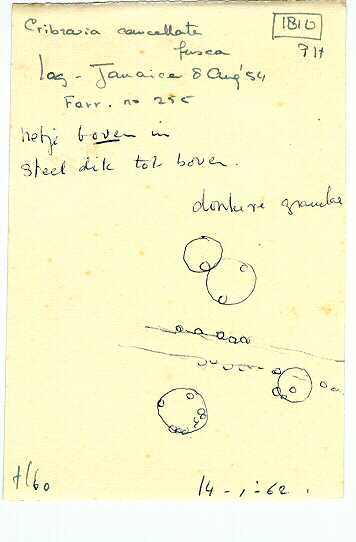 Cribraria cancellata
fusca
1810
914
Lag - Jamaica 8 Aug '54
Farr. no 255
netje boven in
steel dik tot boven.
donkere granula
H/60
14-1-62.